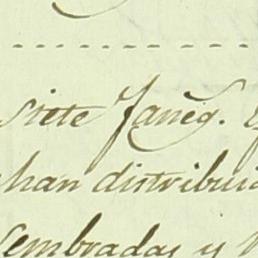 siete faneg.
han distribui
sembradas y